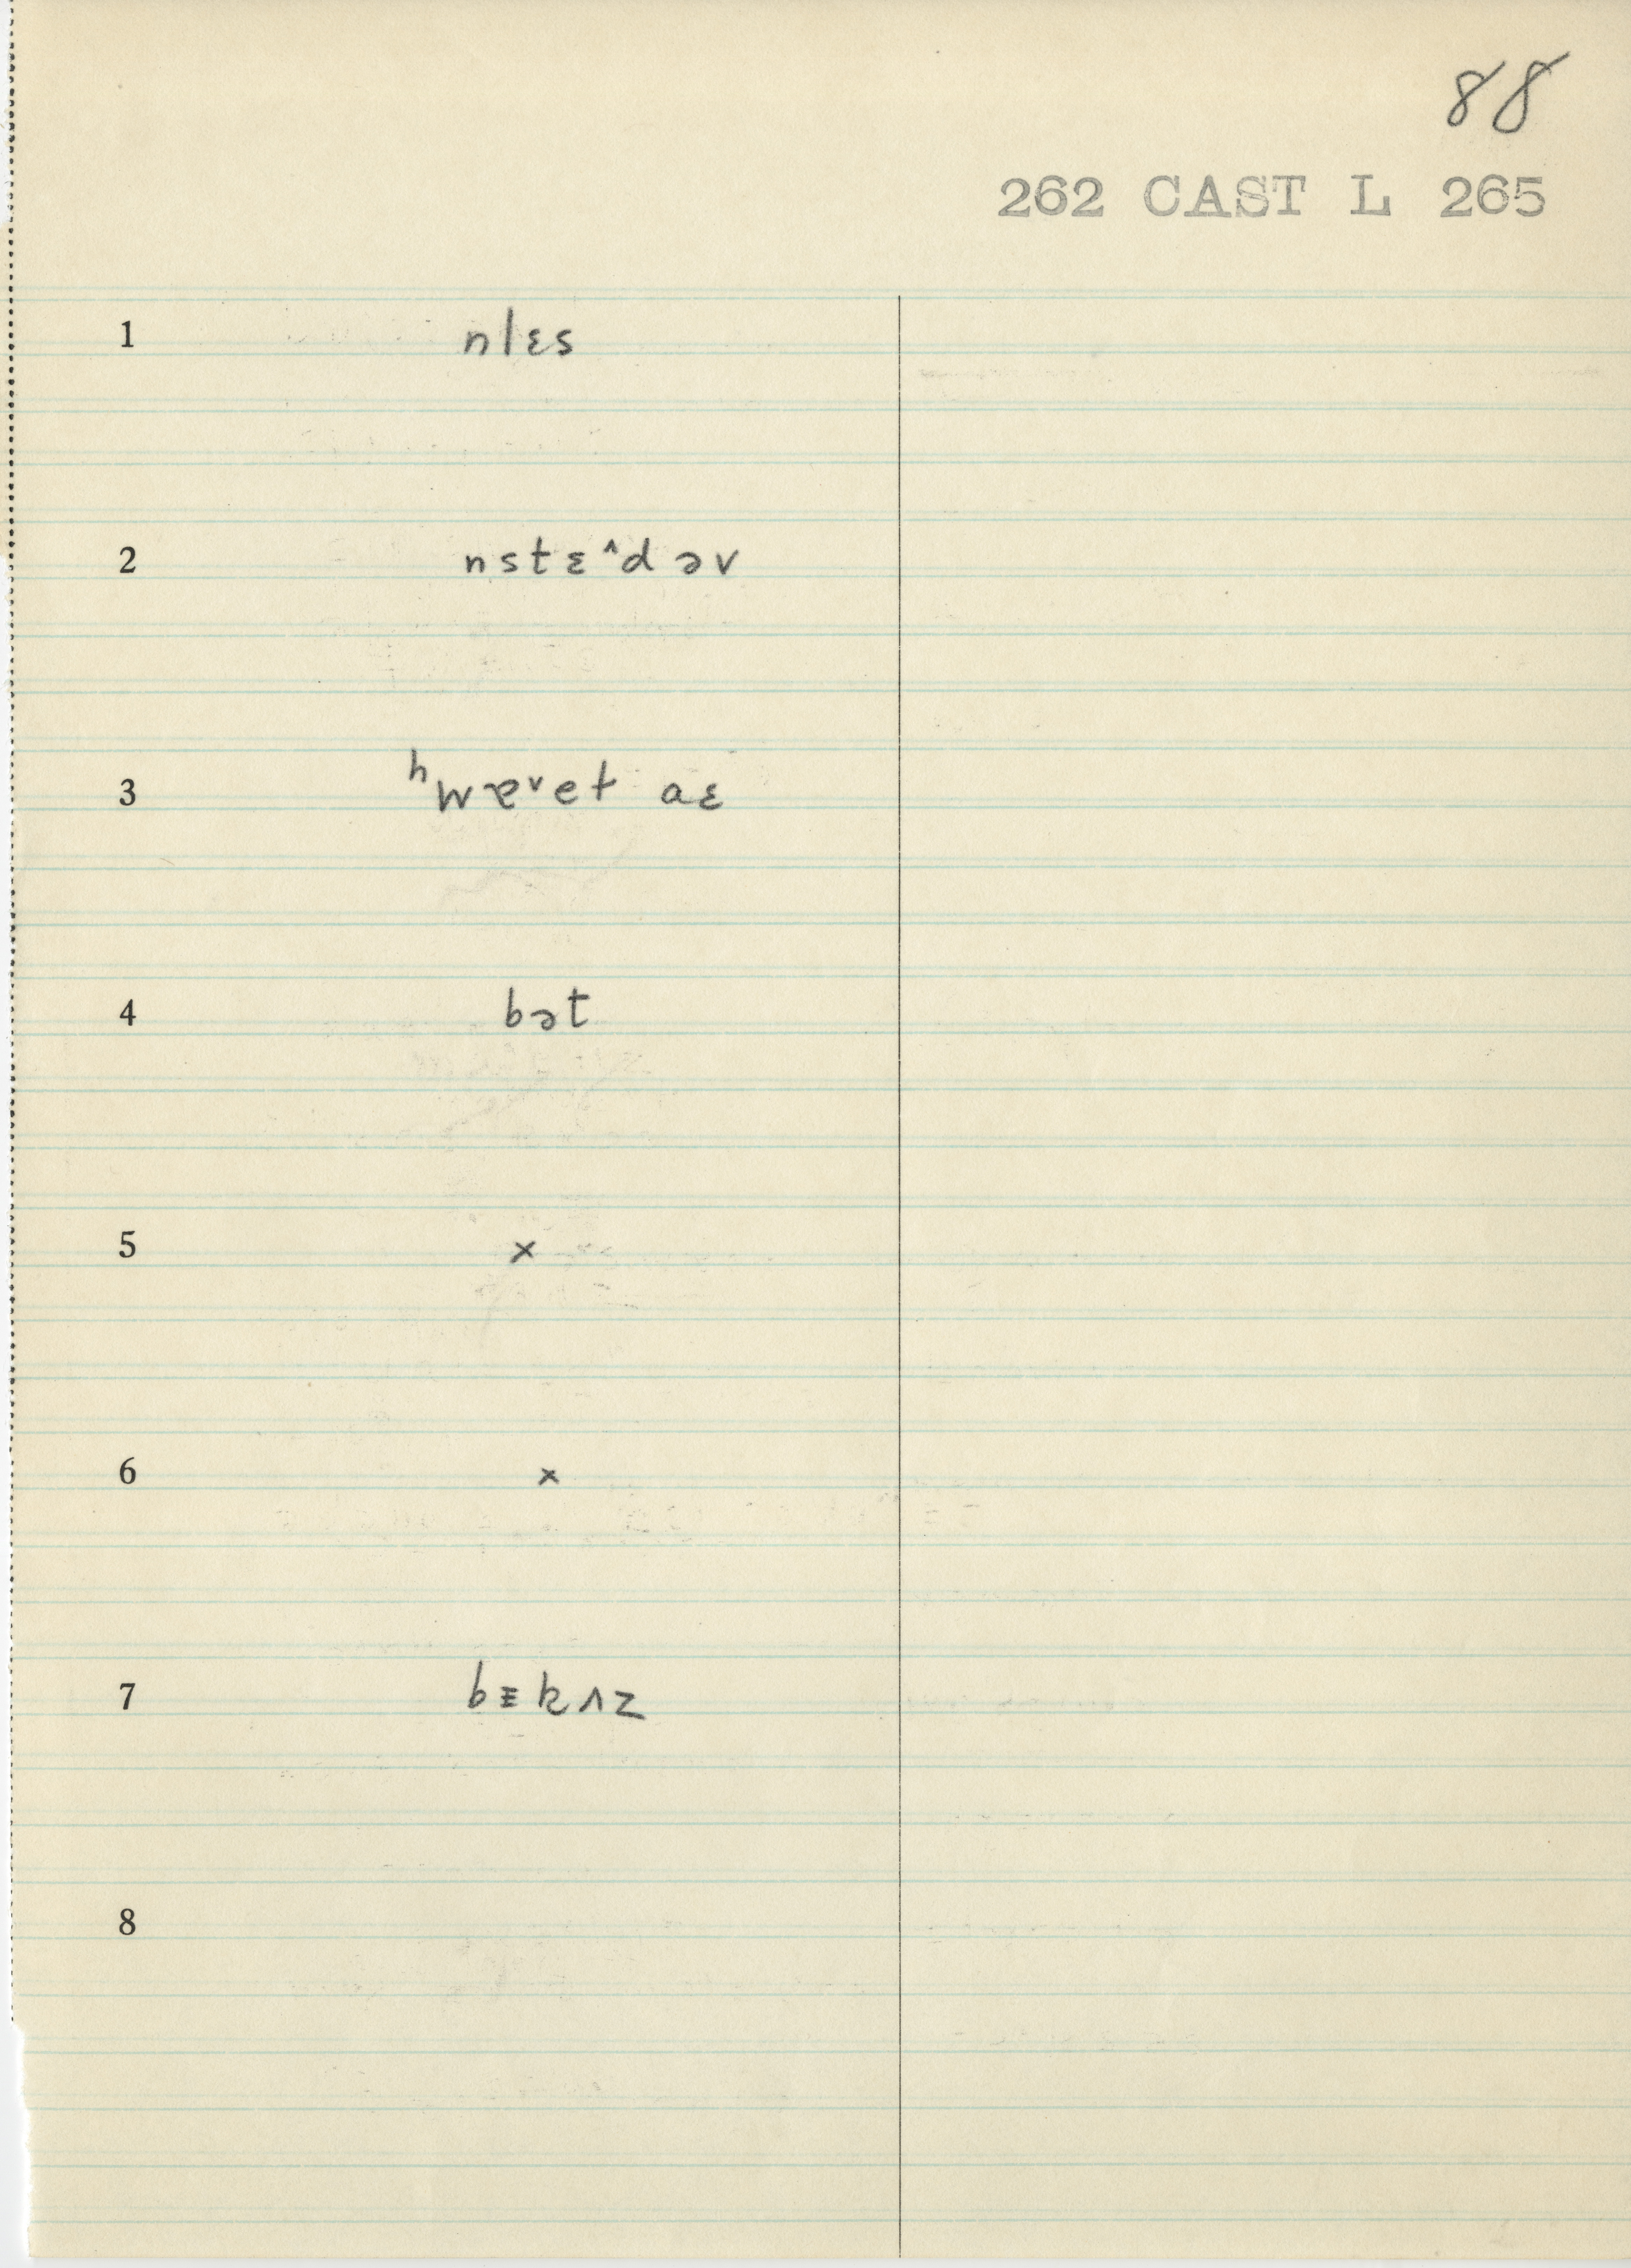 88
262 CAST L 265
1 nlɛs
2 nstɛ^dəv
3 ʰwɐᵛet aɛ
4 bət
5 x
6 x
7 bᴇkʌz
8